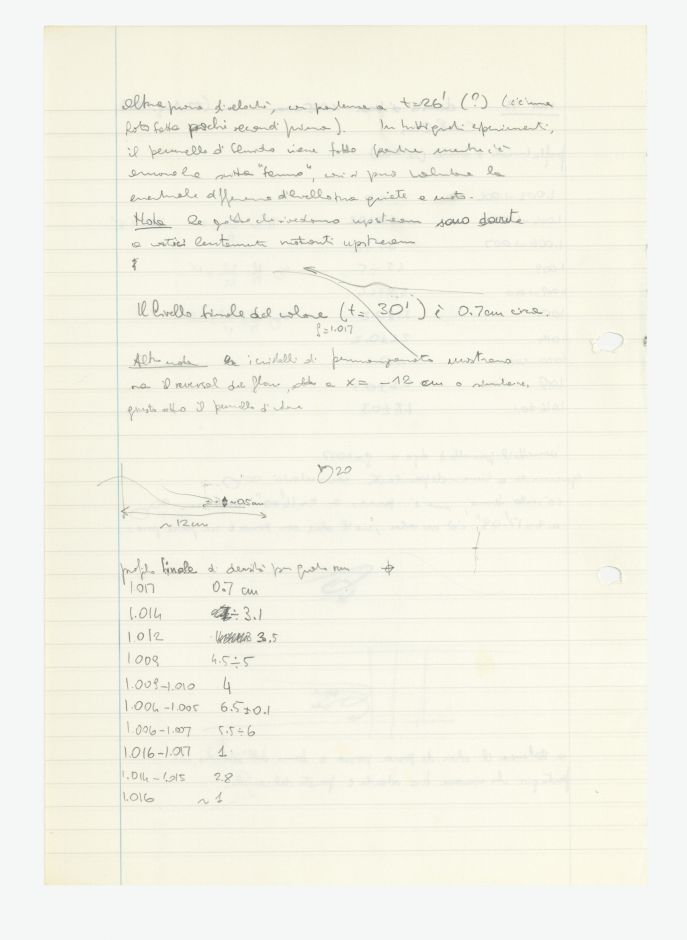 Altra prova di velocità, con partenza a t=26' (?) (
foto fatta pochi secondi prima). In tutti questi esperimenti,
il pennello di viene fatto partire mentre c'è
ancora "fermo", così si può valutare la
eventuale differenza di livello tra quiete e moto.
Nota le gobbe che si vedono upstream sono dovute
a vortici lentamente rotanti upstream
Il livello finale del colore (t= 30') è 0.7cm circa.
ρ=1.017
Altra nota i di permanganato mostrano
un reversal del flow, a x= -12 cm o similare,
questo il pennello d'
20
0.5cm
~12cm
profilo finale di densità per questo run
1.017 0.7 cm
1.014 ÷ 3.1
1.012 3.5
1.009 4.5÷5
1.009-1.010 4
1.004-1.005 6.5±0.1
1.006-1.007 5.5÷6
1.016-1.017 1
1.014-1.015 2.8
1.016 ~ 1